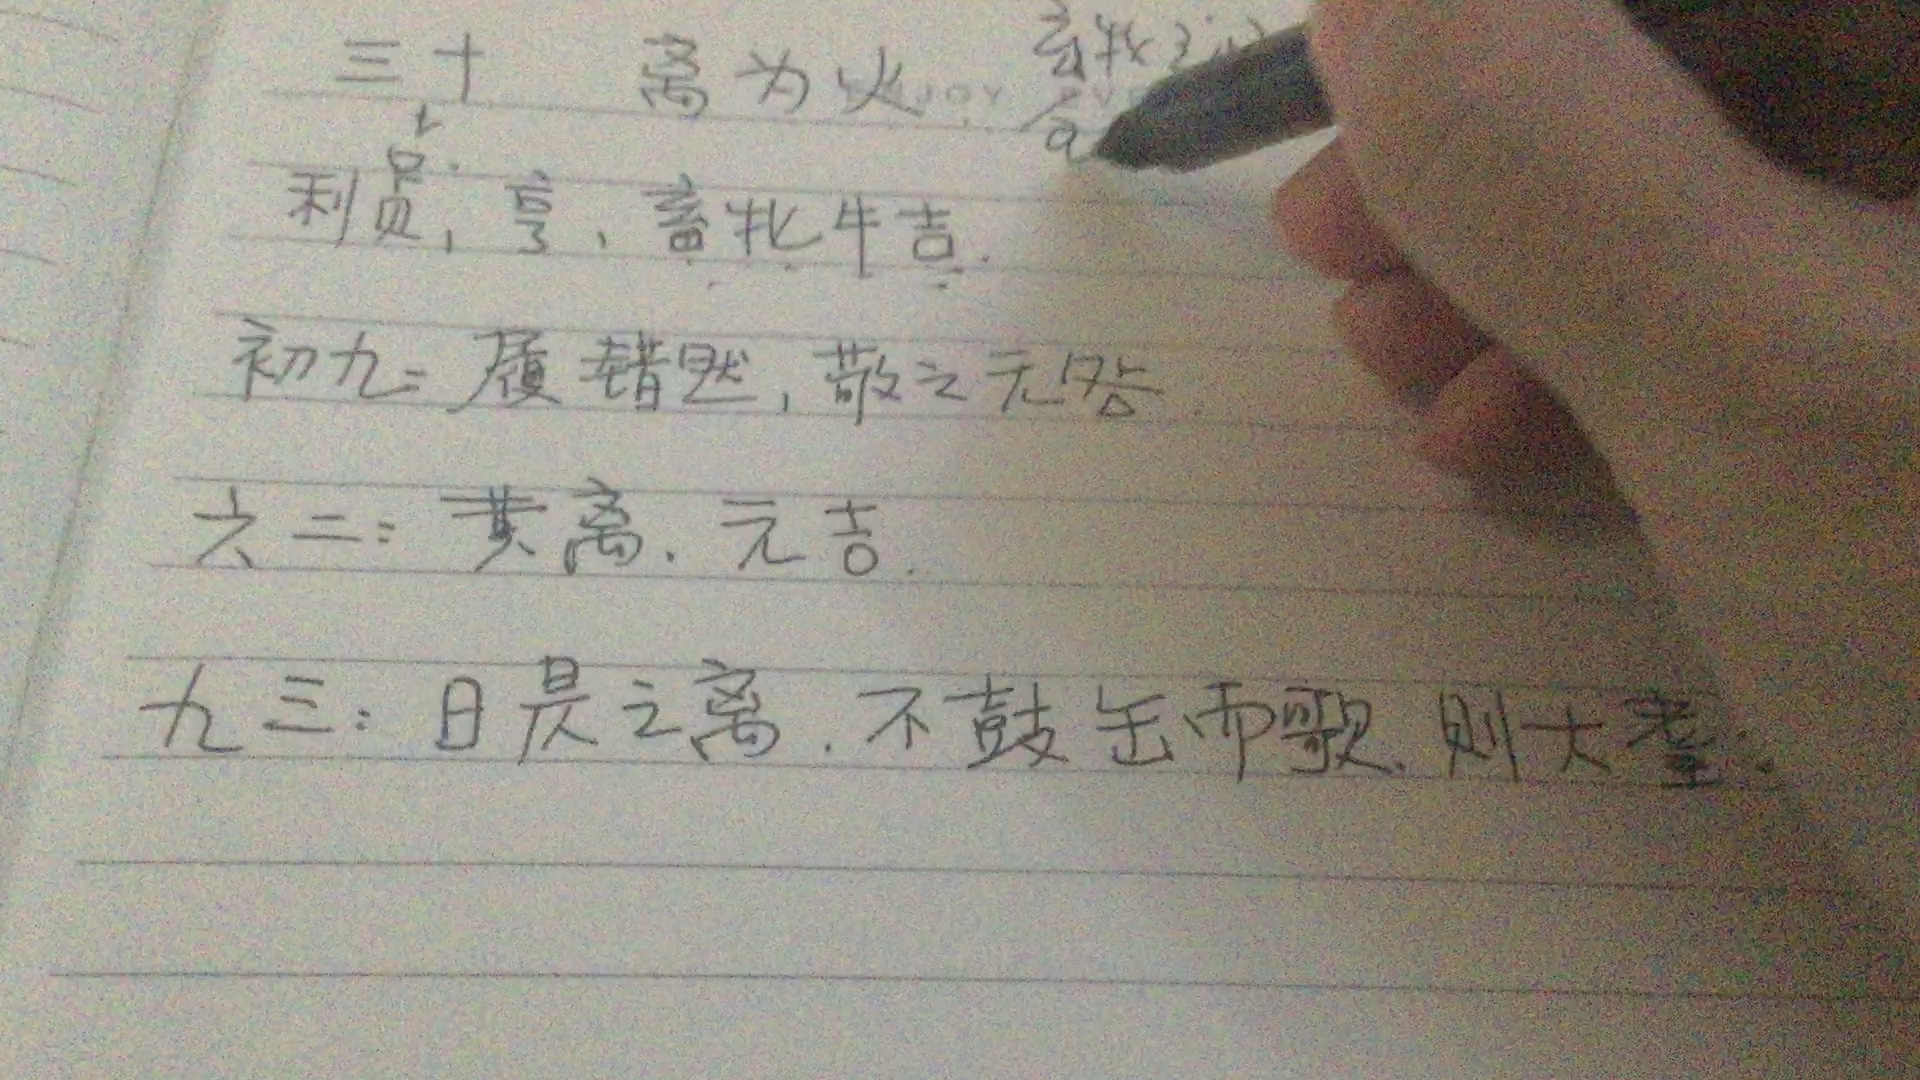 三十 离为火
利贞,亨,畜牝牛吉.
初九:履错然,敬之无咎.
六二:黄离.元吉.
九三:日昃之离.不鼓缶而歌.则大耋.